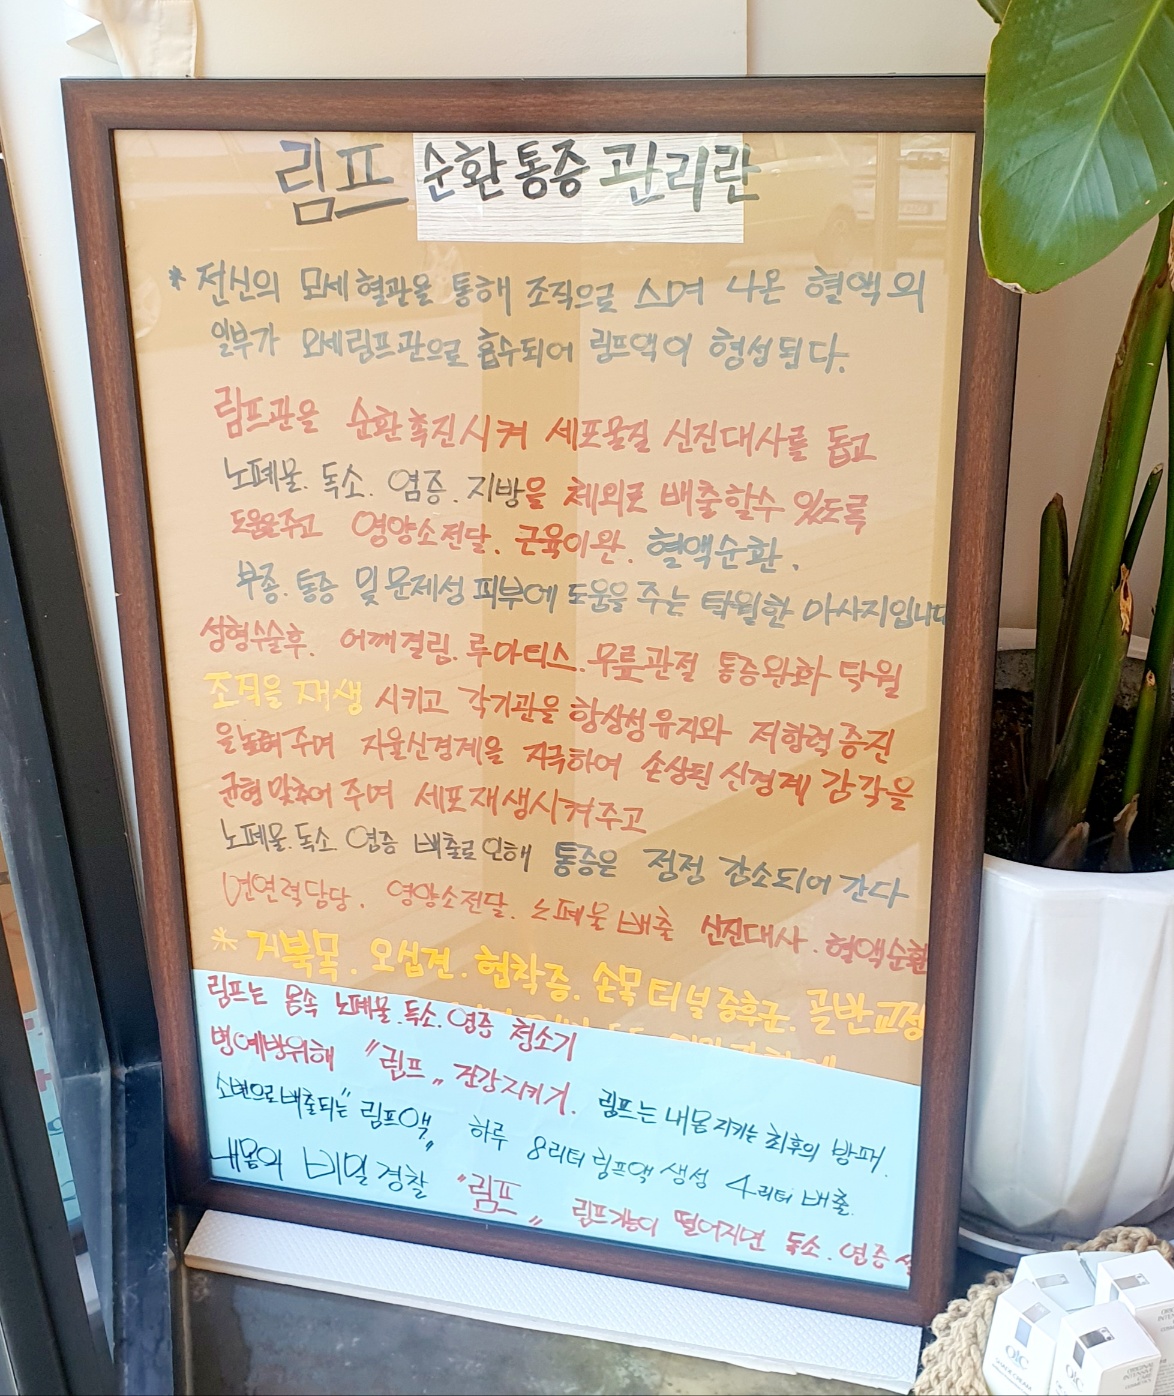 림프 순환통증관리란
* 전신의 모세혈관을 통해 조직으로 스며 나온 혈액의
일부가 모세림프관으로 흡수되어 림프액이 형성된다.
림프관을 순환촉진시켜 세포물질 신진대사를 돕고
노폐물. 독소. 염증. 지방을 체외로 배출할수 있도록
도움을주고 영양소전달. 근육이완. 혈액순환.
부종. 통증 및 문제성 피부에 도움을 주는 탁월한 마사지입니다
성형수술후. 어깨결림. 루마티스. 무릎관절 통증완화 탁월
조직을 재생 시키고 각기관을 항상성유지와 저항력증진
을높여주며 자율신경계을 자극하여 손상된 신경계 감각을
균형맞추어 주며 세포재생시켜주고
노폐물. 독소 염증 배출로인해 통증은 점점 감소되어 간다
면연력담당. 영양소전달. 노폐물배출 신진대사. 혈액순환
* 거북목. 오십견. 협착증. 손목터널증후군. 골반교정
림프는 몸속 노폐물. 독소. 염증 청소기
병예방위해 "림프" 건강지키기. 림프는 내몸지키는 최후의 방패.
소변으로배출되는 "림프액" 하루 8리터 림프액 생성 4리터 배출.
내몸의 비밀경찰 "림프" 림프기능이 떨어지면 독소. 염증